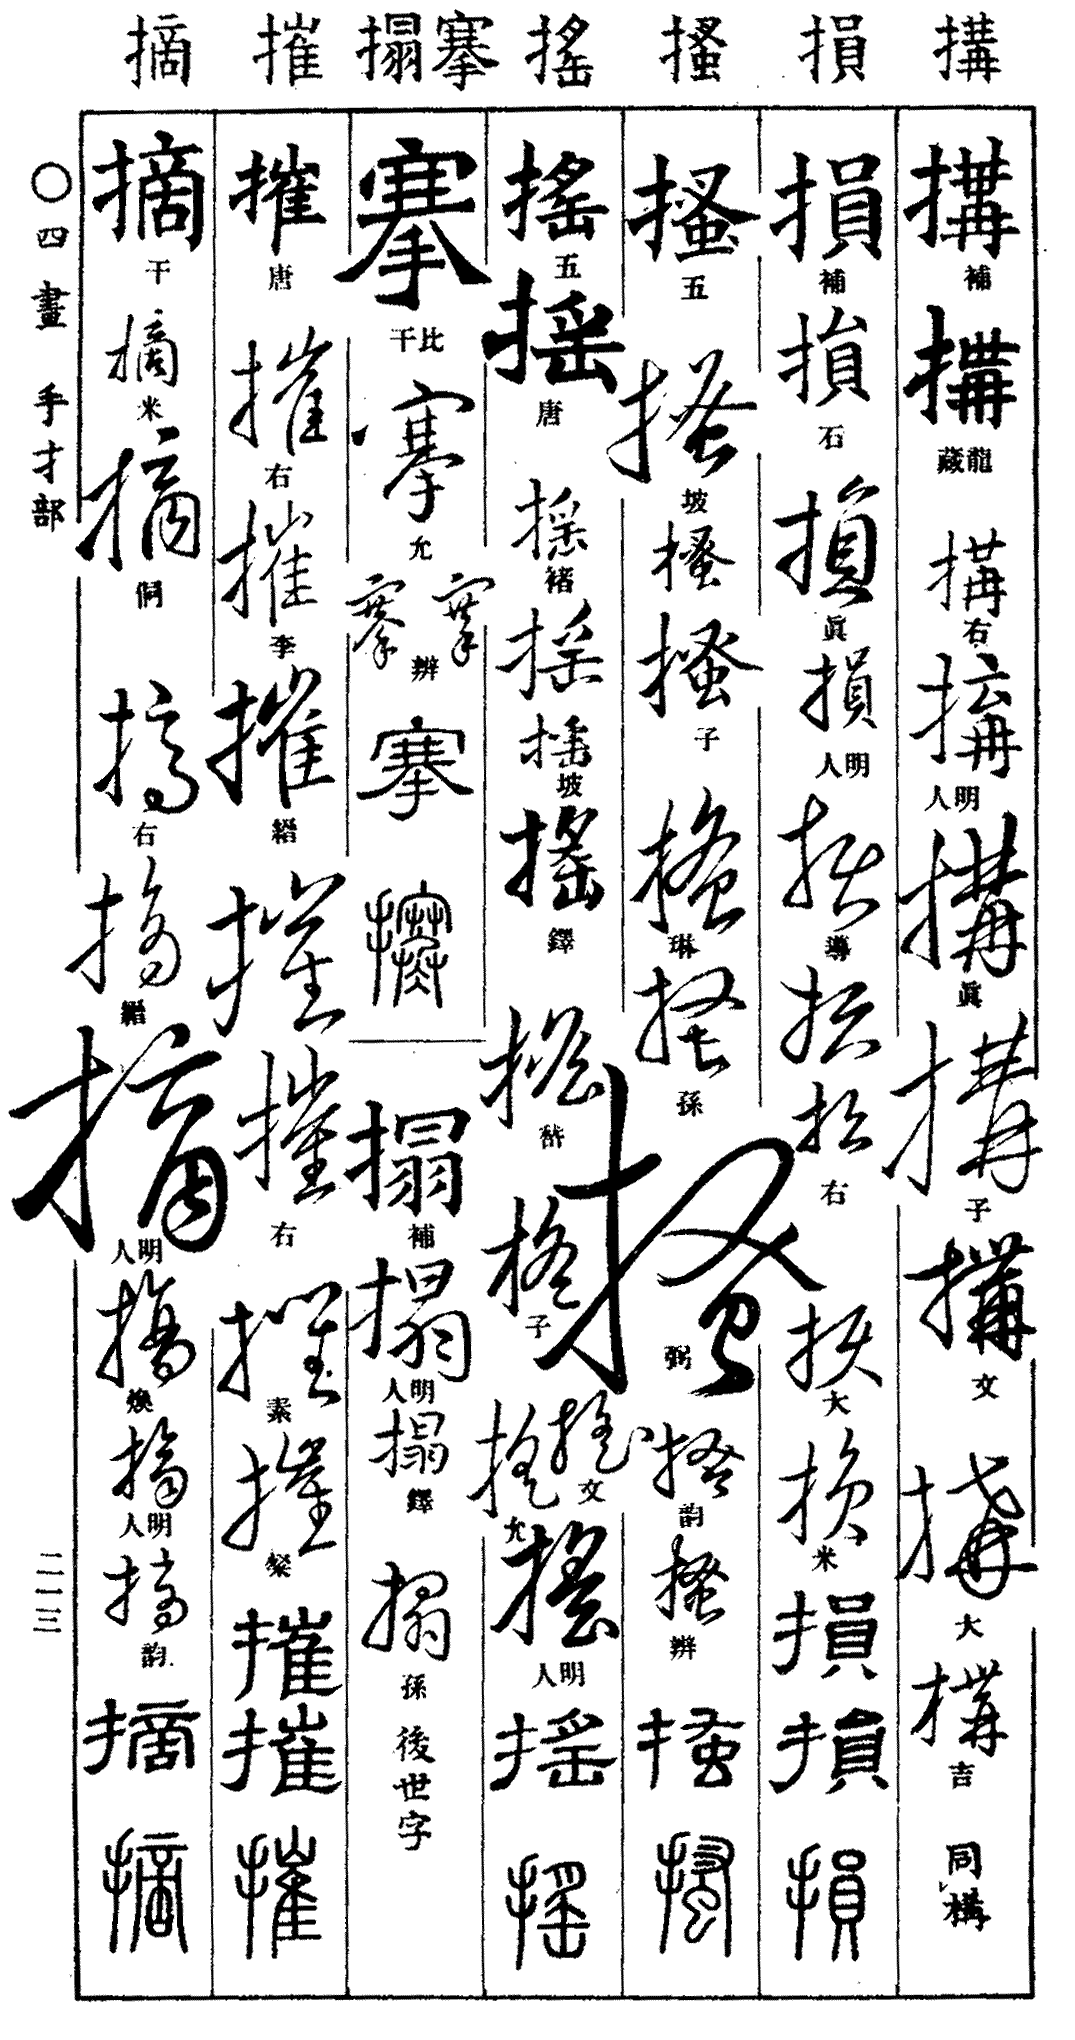 搆 損 搔 搖 搴 搨 摧 摘
搆 補
搆 龍藏
搆 右
搆 明人
搆 眞
搆 子
搆 文
搆 大
搆 吉
同搆
損 補
損 石
損 眞
損 明人
損 導
損 損 右
損 大
損 米
損
損
損
搔 五
搔 坡
搔
搔 子
搔 琳
搔 孫
搔 弼
搔 韵
搔 辨
搔
搔
搖 五
搖 唐
搖 褚
搖
搖 坡
搖 鐸
搖
搖 子
搖 文
搖 允
搖 明人
搖
搖
搴 比干
搴 允
搴 搴 辨
搴
搴
搨 補
搨 明人
搨 鐸
搨 孫
後世字
摧 唐
摧 右
摧 李
摧 縉
摧
摧 右
摧 素
摧 粲
摧
摧
摧
摘 干
摘 米
摘 侗
摘 右
摘 縉
摘 明人
摘 煥
摘 明人
摘 韵
摘
摘
〇四畫 手才部
二一三